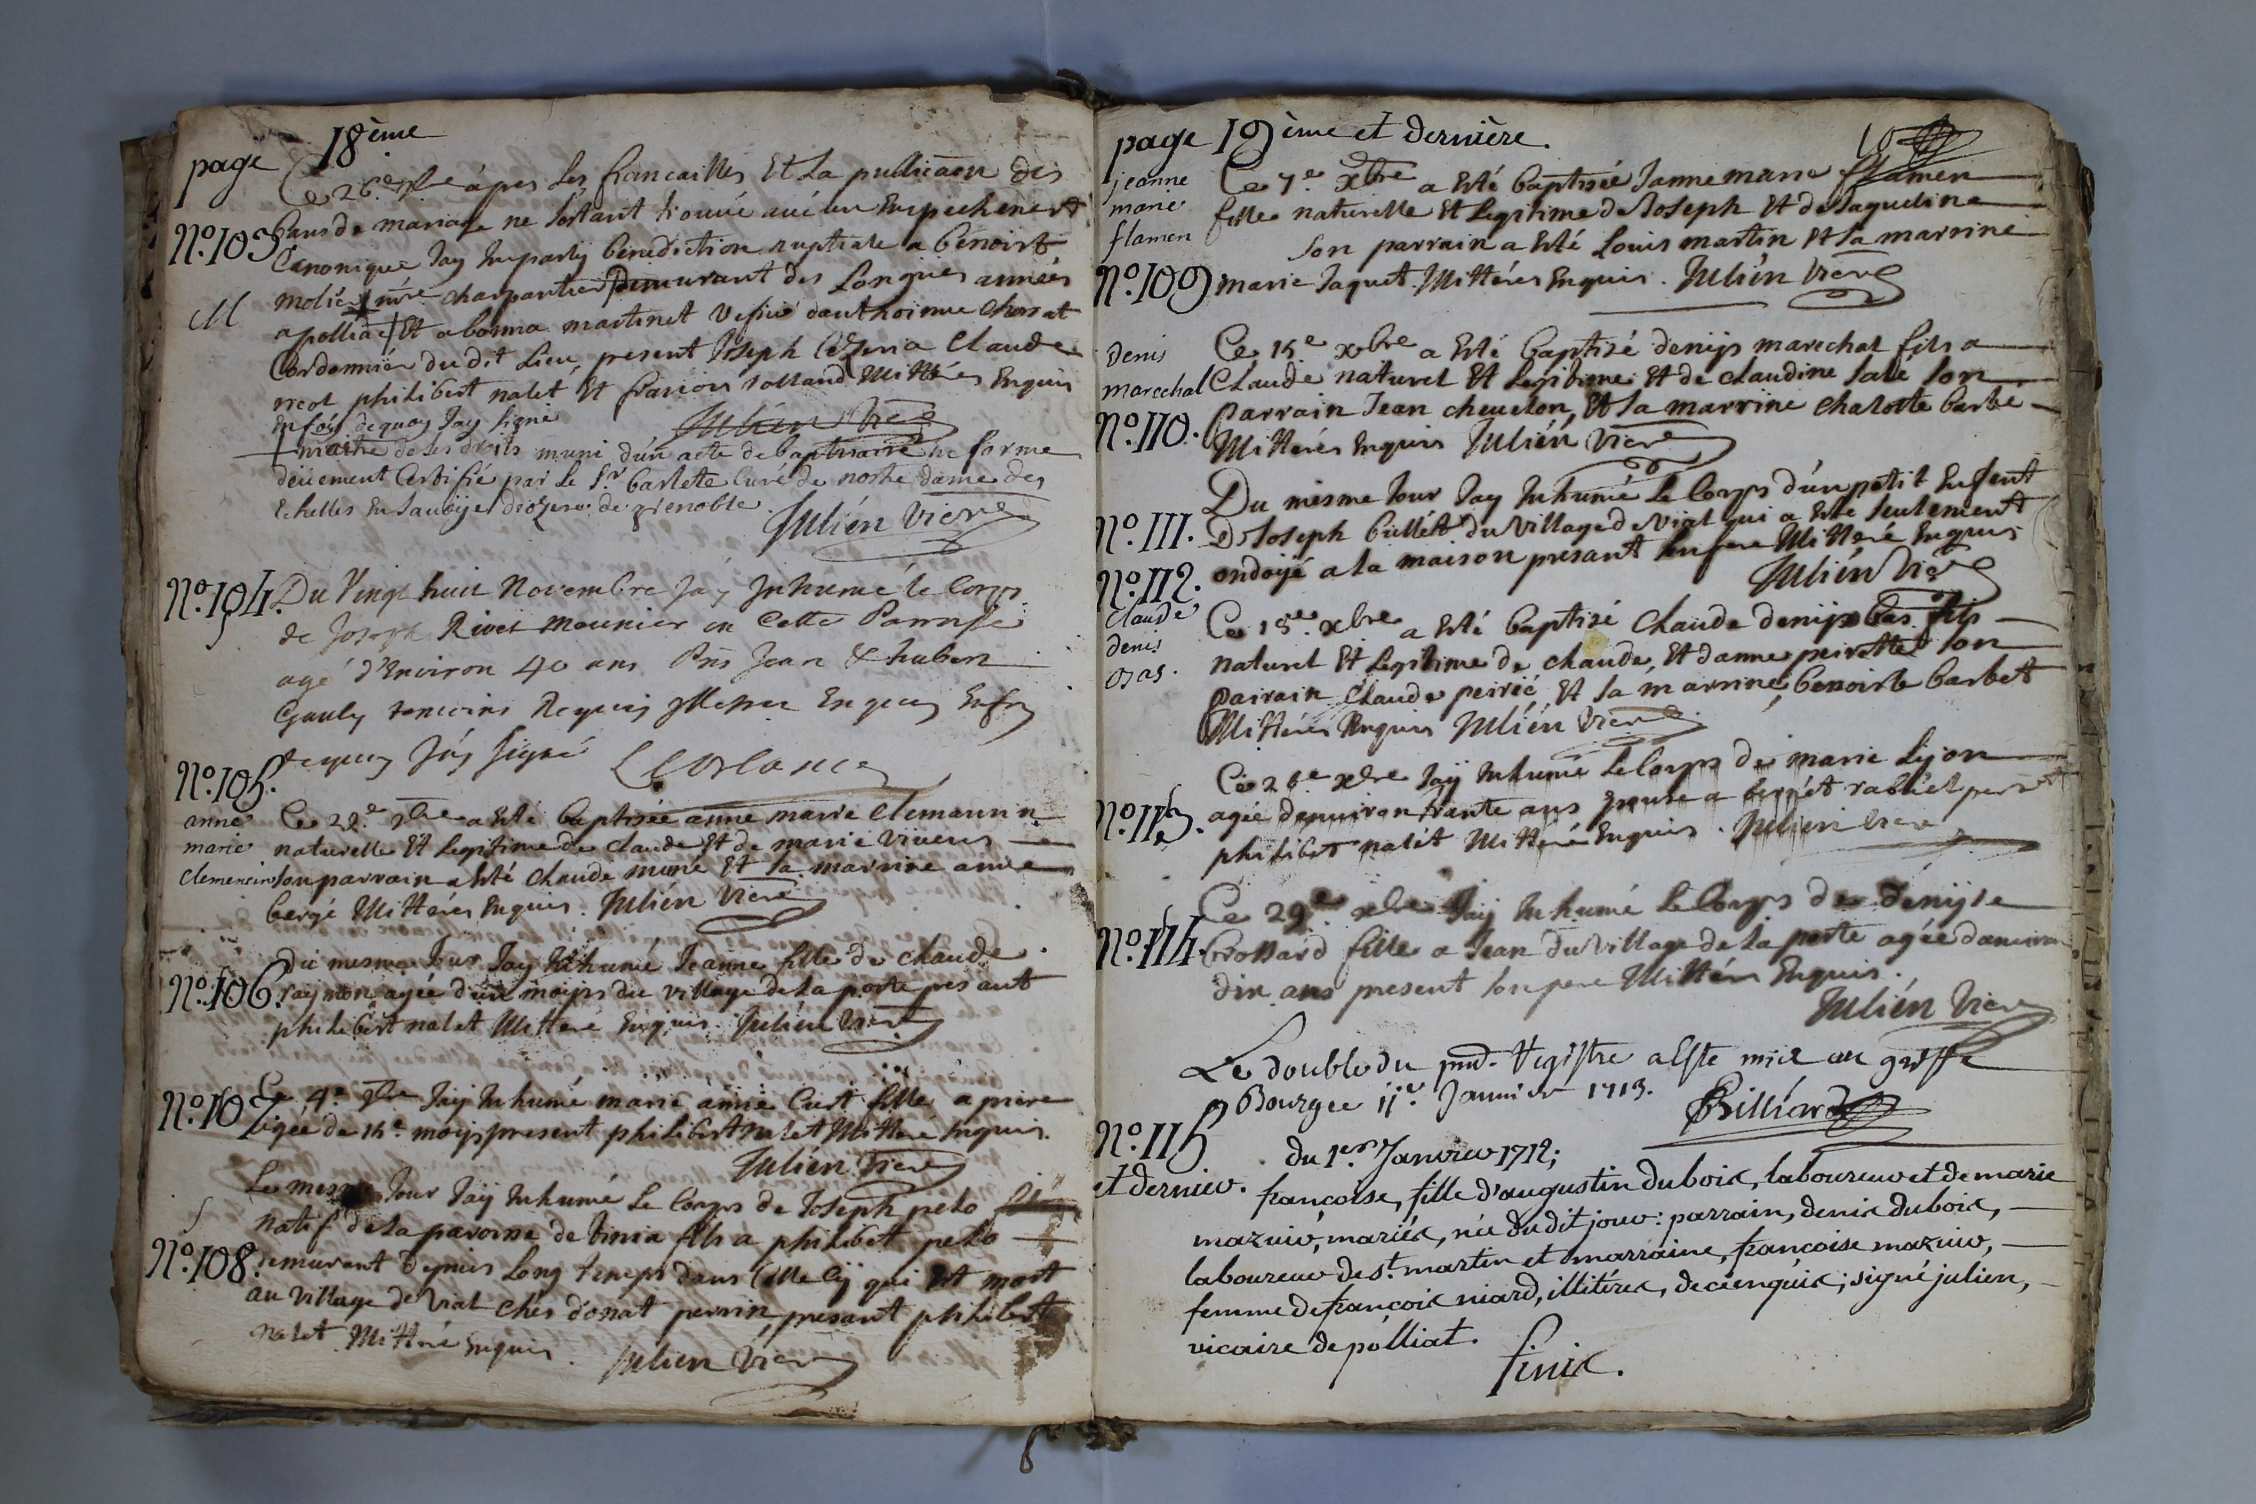 page 18ème
Ce 26.e 9bre apres les fiancailles Et La publicaon des
bans de mariage ne sestant trouvé aucun Empechement
No.103
Canonique Jay Imparty benediction nuptiale a benoist
molié mre charpantier demurant des Longues années
M
apolliac Et a bonna martinet vefue danthoinne Chossat
Cordonnier du dit Lieu, present Joseph Claude
philibert nalet Et francois rolland Mitterés Enquis
En foy dequoy Jay signé Julién vicre
maitre de ses droits muni d'un acte de baptistaire En forme
deüement Certifié par Le Sr. barlette Curé de nostre dame des
Echelles En Sauoÿe diozese de grénoble.
Julién vicre
No.104.
Du Vingt huit Novembre Jáy Inhumé le Corps
de Joseph Rivet meunier en Cette Parroisse
agé d'Environ 40 ans Pñs Jean & hubert
Gauly temoins Requis Enquis Enfoy
dequoy Jáy signé
No.105.
anne
marie
Ce 29.e 9bre a Esté baptisée anne marie Clemannin
naturelle Et Legitime de claude Et de marie viveus
son parrain a Esté claude muné Et sa marrine anne
bergé Mitterés Enquis. Julién vicre
Du mesme Jour Jay Inhumé Jeanne fille de claude
No.106.
raymon agée d'un moijs du village de La poste presant
philibert nalet Mitteré Enquis. Julién vicre
No.107
Ce 4.e Jaij Inhumé marie anne Curt fille a piere
agée de 15.e moijs present philibert nalet Mitteré Enquis.
Julién vicre
Le mesme Jour Jaÿ Inhumé Le Corps de Joseph pelo
natif de La paroisse de finia fils a philibert pelo
No.108.
demurant depuis Long temps dans Celle Cÿ qui Est mort
au village de vial chés donat perrin, presant philibert
nalet Mitteré Enquis. Julien vicre
page 19ème et dernière.
jeanne
marie
flamen
Ce 7.e xbre a Esté baptisée Janne marie flamen
fille naturelle Et Legitime de Joseph Et de Jaqueline
son parrain a Esté Louis martin Et sa marrine
No.109
marie Jaquet. Mitterés Enquis. Julién vicre
denis
marechal
Ce 15.e xbre a Esté baptizé denijs marechal fils a
Claude naturel Et Legitime Et de claudine son
No.110.
parrain Jean cheuelon, Et sa marrine chalotte barbe
Mitterés Enquis Julién vicre
Du mesme Jour Jay Inhumé Le Corps d'un petit Enfent
No.111.
D. Joseph du village de vial qui a Esté seulement
ondoyé a la maison presant son pere Mitteré Enquis
Julién vicre
No.112.
claude
denis
Ce 18.e xbre a Esté baptizé Claude denijs bas fils
naturel Et Legitime de claude, Et danne peirette son
parrain Claude, Et sa marrine, benoiste barbet
Mitterés Enquis Julién vicre
Ce 26.e xbre Jaÿ Inhumé Le Corps de marie Lijon
No.113.
agée denuiron trante ans a benoit
philibert nalét Mitteré Enquis. Julien vicre
Ce 29.e xbre Jaÿ Inhumé Le Corps de denijse
No.114.
brossard fille a Jean du village de La poste agée danuiron
dix ans present son pere Mitteré Enquis.
Julién vicre
Le double du pnt. Registre a Esté mis au greffe
Bourg ce 11.e Januier 1713. Billiard
No.115
et dernier.
du 1er. Janvier 1712;
françoise, fille d'augustin dubois, laboureur et de marie
mazuir, mariés, née du dit jour: parrain, denis dubois,
laboureur de st. martin et marraine, françoise mazuir,
femme de françois niard, illitérés, de ce enquis; signé julien,
vicaire de pólliat.
finis.